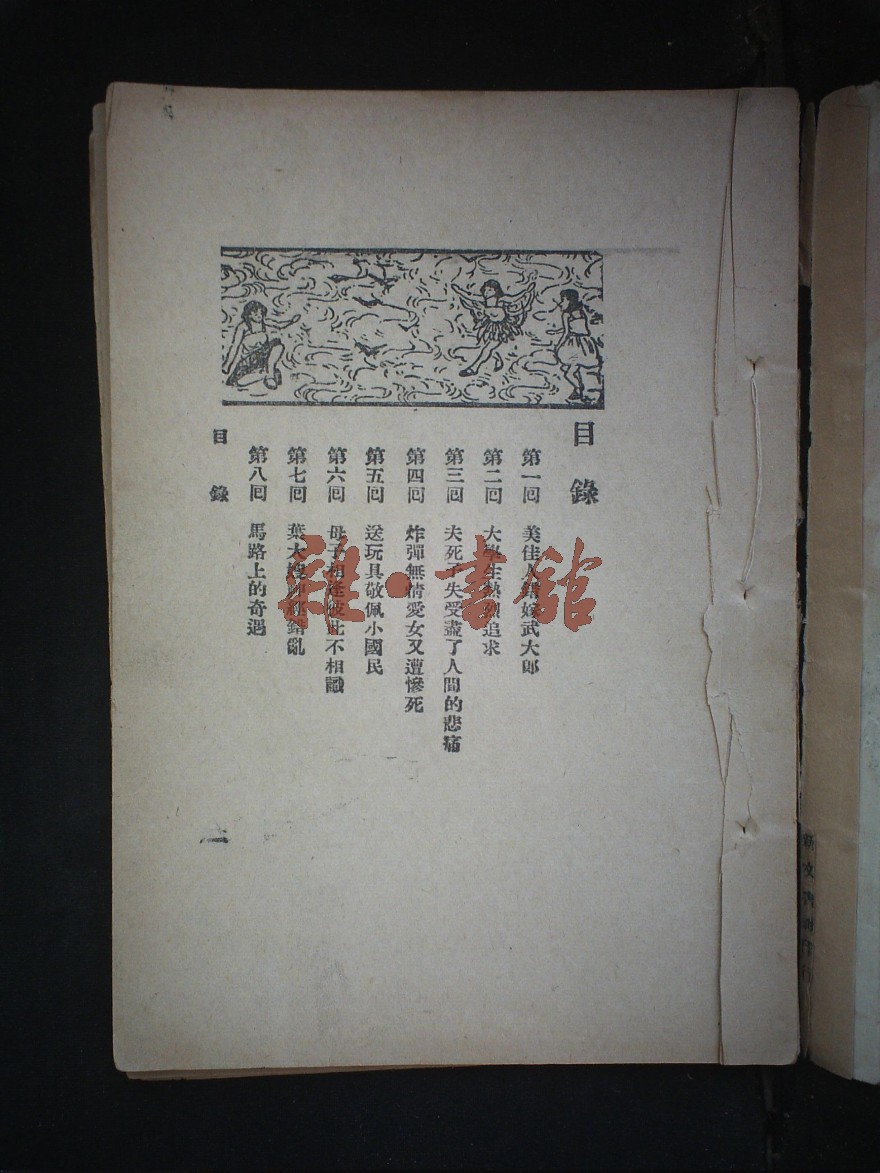 目錄
第一回 美佳人錯嫁武大郎
第二回 大學生熱烈追求
第三回 夫死子失受盡了人間的悲痛
第四回 炸彈無情愛女又遭慘死
第五回 送玩具敬佩小國民
第六回 母子相逢彼此不相識
第七回 葉大嫂神經錯亂
第八回 馬路上的奇遇
目錄
雜·書館